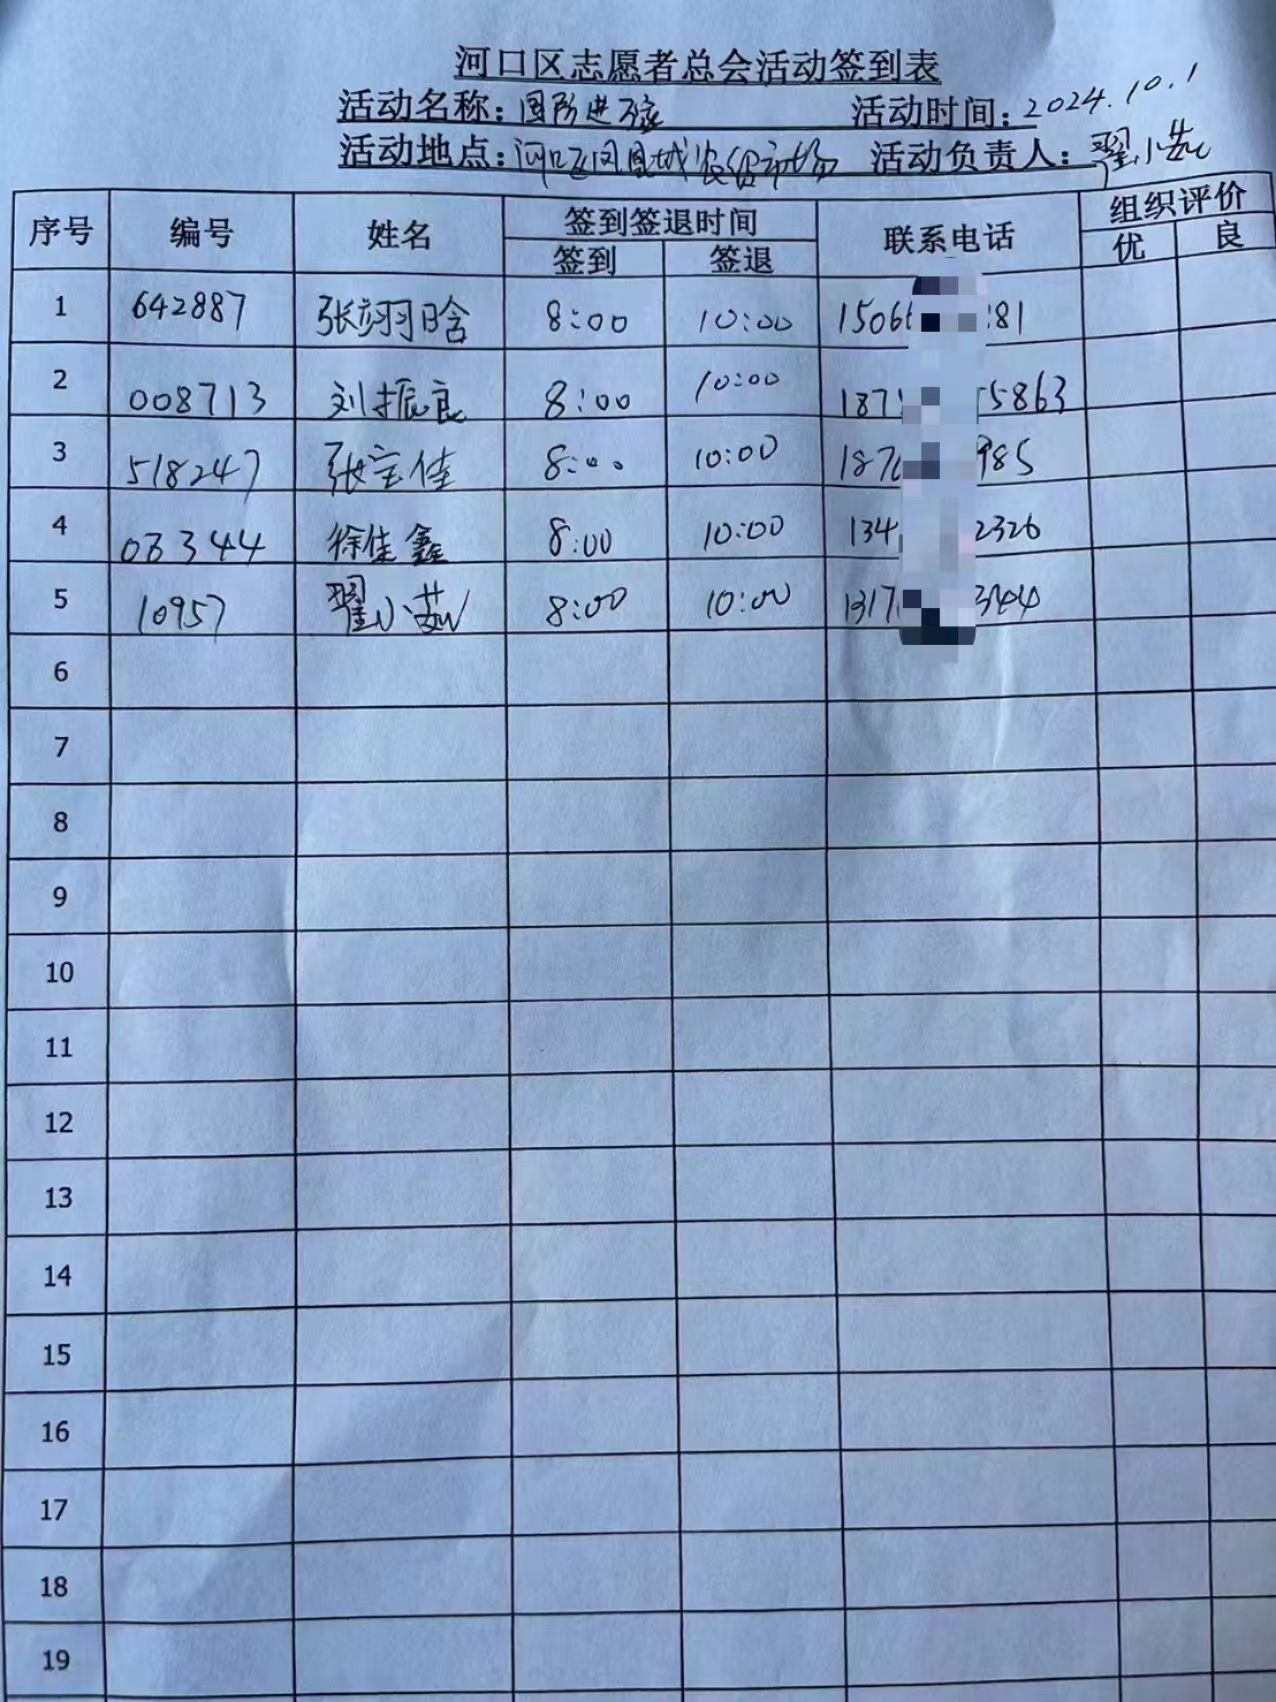 河口区志愿者总会活动签到表
活动名称: 活动时间: 2024.10.1
活动地点: 河口区凤凰城农贸市场 活动负责人: 翟小茹
序号 编号 姓名 签到签退时间 联系电话 组织评价
签到 签退 优 良
1 642887 张翊晗 8:00 10:00 1506 81
2 008713 刘振良 8:00 10:00 187 5863
3 518247 张宝佳 8:00 10:00 187 985
4 083344 徐佳鑫 8:00 10:00 134 2326
5 10957 翟小茹 8:00 10:00 1317 3444
6
7
8
9
10
11
12
13
14
15
16
17
18
19